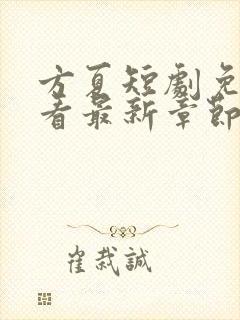 方夏短劇免
看最新章節
崔哉誠